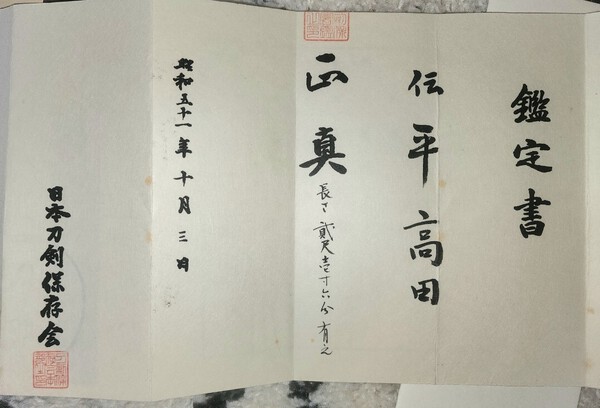 鑑定書
伝平高田
正真
長サ貳尺壱寸六分有之
昭和五十一年十月三日
日本刀剣保存会